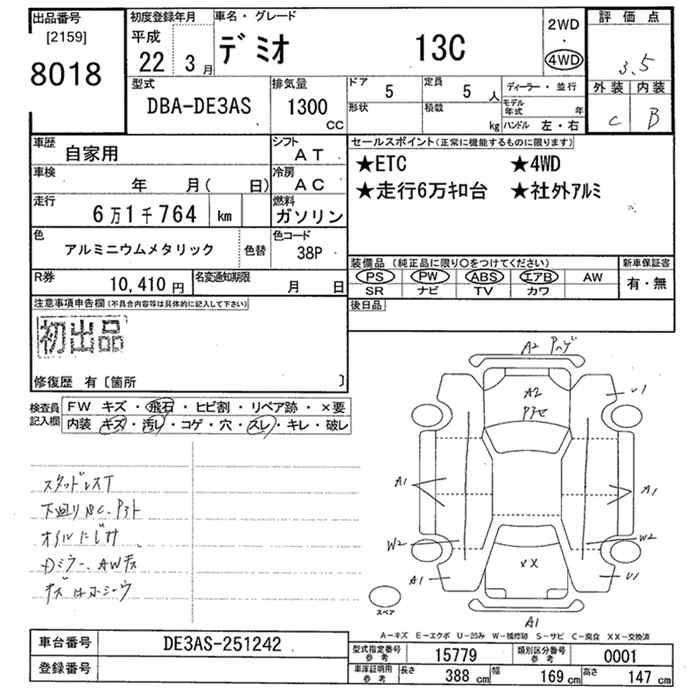 出品番号 初度登録年月 車名・グレード 2WD 評価点
[2159] 平成 デミオ 13C ・
8018 22 3月 4WD 3.5
型式 排気量 ドア 5 定員 5人 ディーラー・並行 外装 内装
DBA-DE3AS 1300 CC 形状 積載 kg モデル年式 年 C B
ハンドル 左・右
車歴 自家用 シフト AT セールスポイント(正常に機能するものに限ります)
車検 年 月( 日) 冷房 AC ★ETC ★4WD
走行 6万1千764 km 燃料 ガソリン ★走行6万キロ台 ★社外アルミ
色 アルミニウムメタリック 色替 色コード 38P
装備品(純正品に限り○をつけてください) 新車保証書
R券 10,410円 名変通知期限 月 日 PS PW ABS エアB AW 有・無
SR ナビ TV カワ
注意事項申告欄(不具合内容等は具体的に記入して下さい) 後日品
初出品
修復歴 有〔箇所 〕
検査員記入欄 FW キズ・飛石・ヒビ割・リペア跡・×要
内装 キズ・汚レ・コゲ・穴・スレ・キレ・破レ
スタッドレスT
オイルにじみ
A2
A2
U1
A1 A1
W2 W2
XX
A1 U1
スペア
A1
A-キズ E-エクボ U-凹み W-補修跡 S-サビ C-腐食 XX-交換済
車台番号 DE3AS-251242
型式指定番号 参考 15779 類別区分番号 参考 0001
登録番号
車庫証明用 参考 長さ 388 cm 幅 169 cm 高さ 147 cm